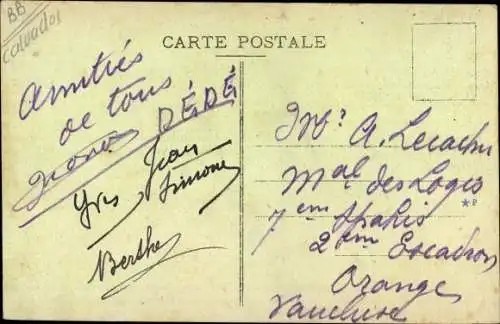 BB
Calvados
CARTE POSTALE
Amitiés
de tous
DÉDÉ
Yves Jean
Simone
Berthe
Mr A.
Mal des Logis
7em Spahis
2em Escadron
Orange
Vaucluse